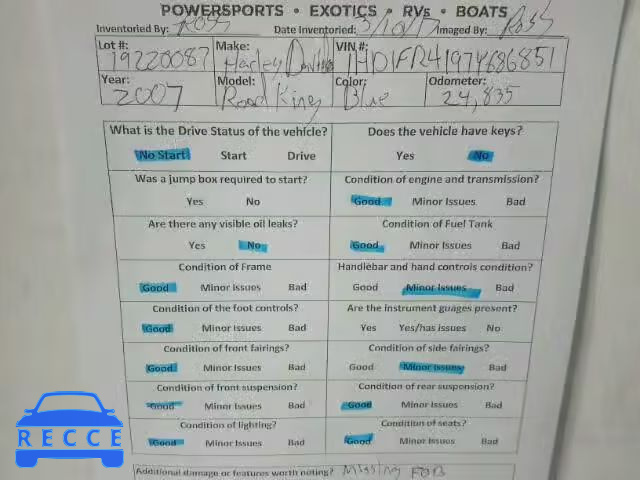 POWERSPORTS • EXOTICS • RVs • BOATS
Inventoried By: Ross Date Inventoried: 3/10/17 Imaged By: Ross
Lot #: 19220087 Make: Harley Davidson VIN #: 1HD1FR4197Y686851
Year: 2007 Model: Road King Color: Blue Odometer: 24,835
What is the Drive Status of the vehicle? Does the vehicle have keys?
No Start Start Drive Yes No
Was a jump box required to start? Condition of engine and transmission?
Yes No Good Minor Issues Bad
Are there any visible oil leaks? Condition of Fuel Tank
Yes No Good Minor Issues Bad
Condition of Frame Handlebar and hand controls condition?
Good Minor Issues Bad Good Minor Issues Bad
Condition of the foot controls? Are the instrument guages present?
Good Minor Issues Bad Yes Yes/has issues No
Condition of front fairings? Condition of side fairings?
Good Minor Issues Bad Good Minor Issues Bad
Condition of front suspension? Condition of rear suspension?
Good Minor Issues Bad Good Minor Issues Bad
Condition of lighting? Condition of seats?
Good Minor Issues Bad Good Minor Issues Bad
Additional damage or features worth noting? Missing FOB
RECCE